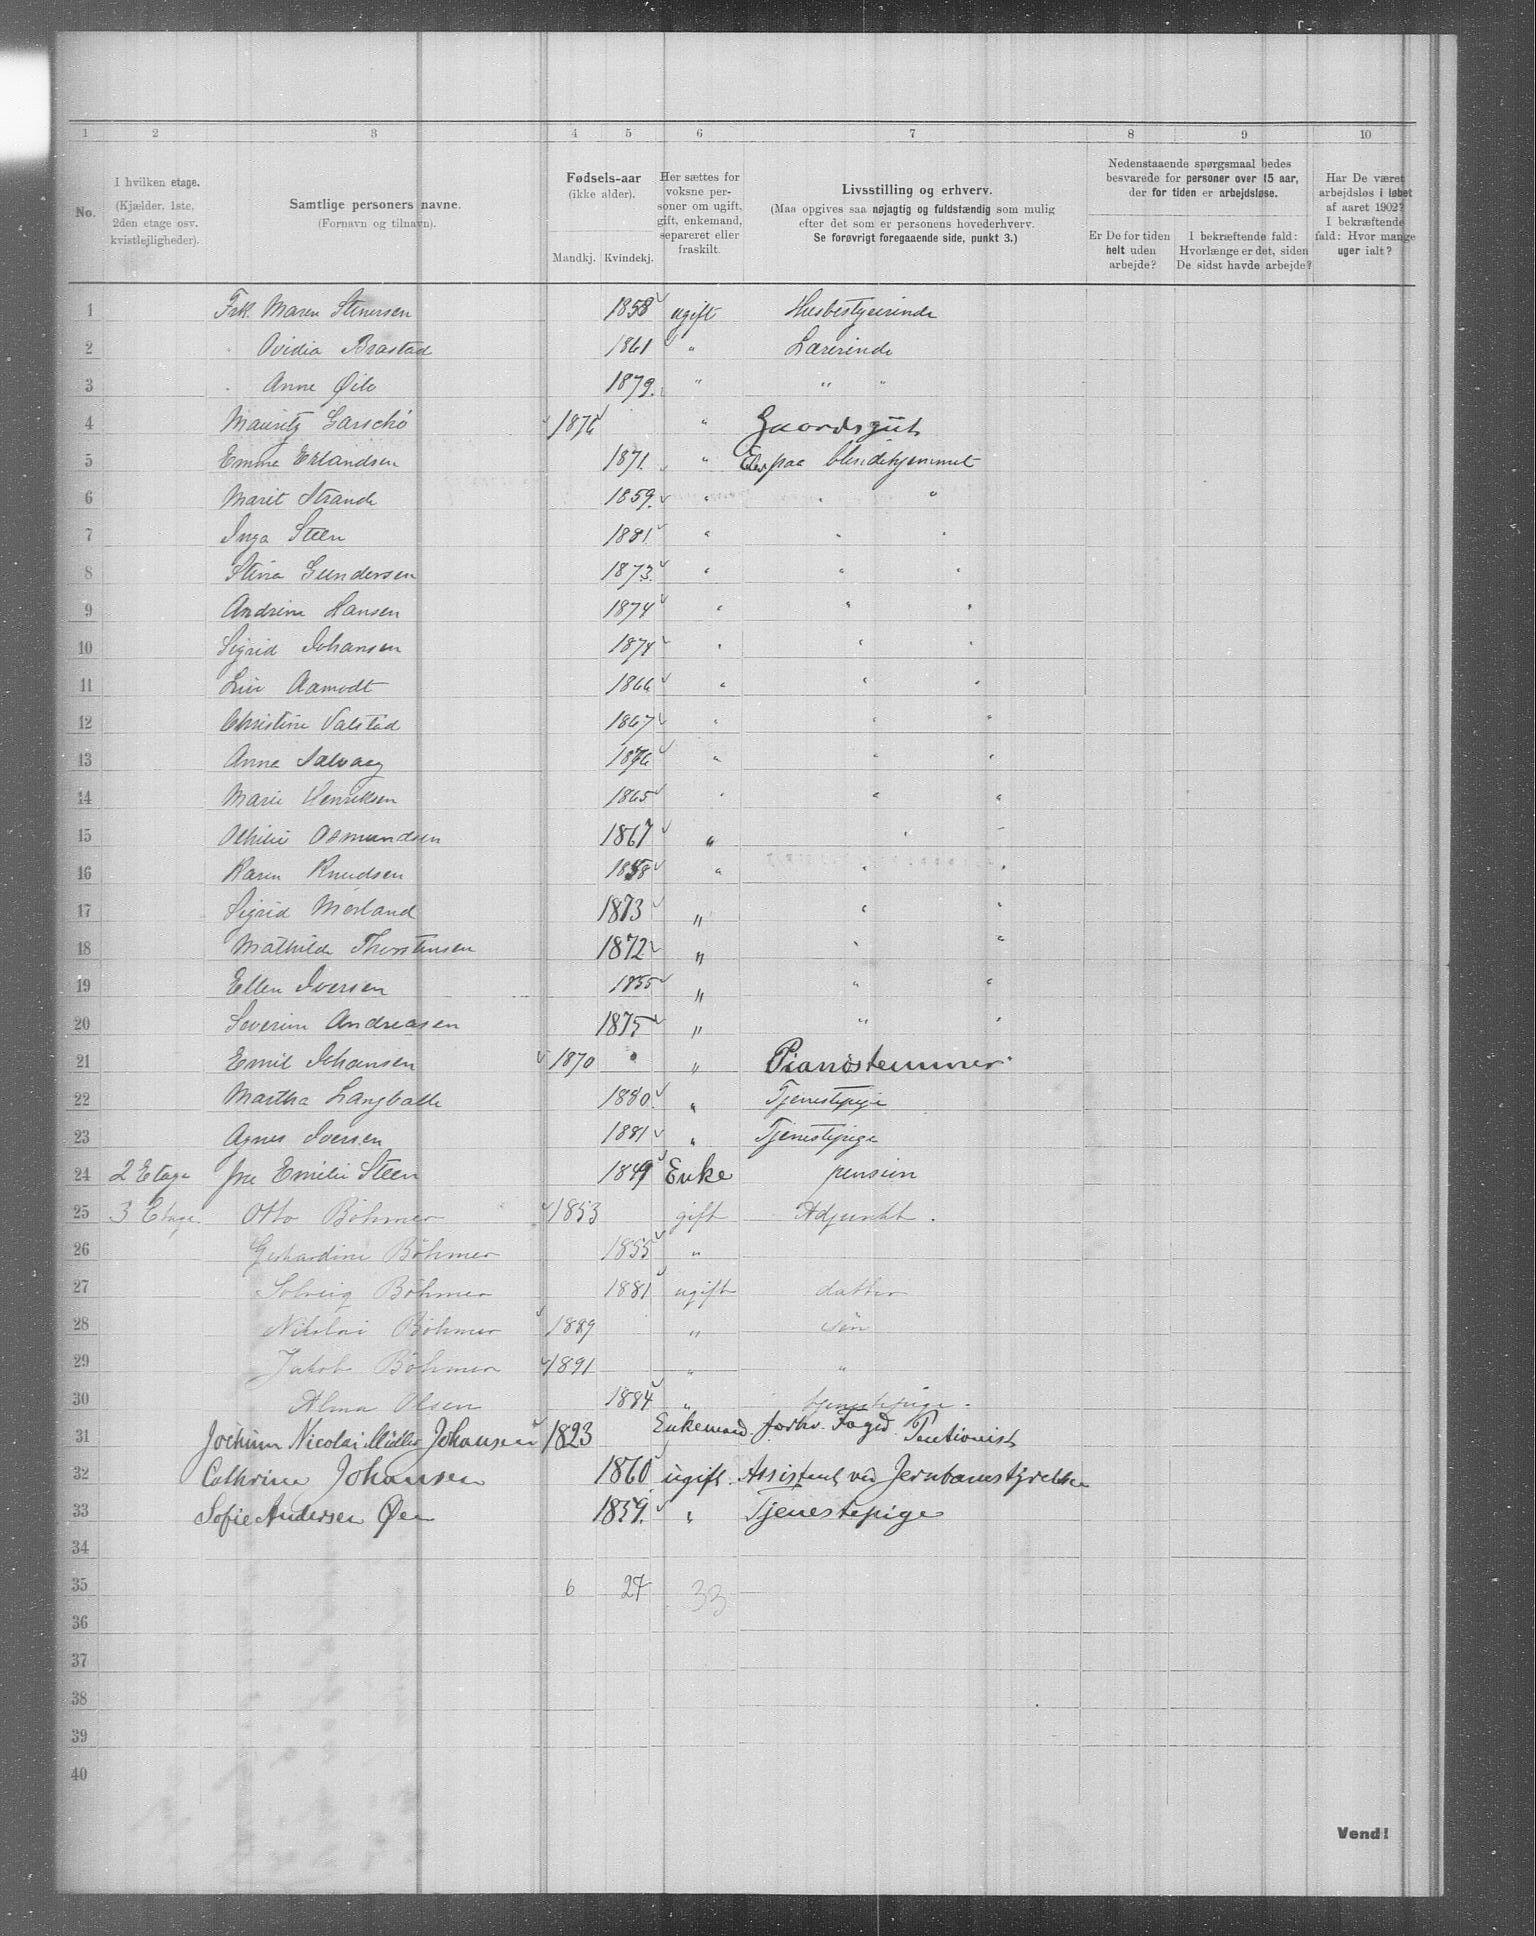 1 2 3 4 5 6 7 8 9 10
No.
I hvilken etage.
(Kjælder, 1ste, 2den etage osv. kvistlejligheder).
Samtlige personers navne.
(Fornavn og tilnavn).
Fødsels-aar
(ikke alder).
Mandkj. Kvindekj.
Her sættes for voksne personer om ugift, gift, enkemand, separeret eller fraskilt.
Livsstilling og erhverv.
(Maa opgives saa nøjagtig og fuldstændig som mulig efter det som er personens hovederhverv.
Se forøvrigt foregaaende side, punkt 3.)
Nedenstaaende spørgsmaal bedes besvarede for personer over 15 aar, der for tiden er arbejdsløse.
Er De for tiden helt uden arbejde?
I bekræftende fald: Hvorlænge er det, siden De sidst havde arbejde?
Har De været arbejdsløs i løbet af aaret 1902? I bekræftende fald: Hvor mange uger ialt?
1 Frk. Maren Stenersen 1858 ugift Husbestyrerinde
2 " Ovidia Brastad 1861 " Lærerinde
3 " Anne 1879 " " "
4 Mauritz 1876 " Gaardsgut
5 Emma Erlandsen 1871 " Elev paa blindehjemmet
6 Marit Strande 1859 " " "
7 Inga Steen 1881 " " "
8 Stina Gundersen 1873 " " "
9 Andrine Hansen 1874 " " "
10 Sigrid Johansen 1874 " " "
11 Liv Aamodt 1866 " " "
12 Christine Valstad 1867 " " "
13 Anna 1876 " " "
14 Marie Henriksen 1865 " " "
15 Othilie Osmundsen 1867 " " "
16 Karen Knudsen 1858 " " "
17 Sigrid Mørland 1873 " " "
18 Mathilde Thorstensen 1872 " " "
19 Ellen Iversen 1855 " " "
20 Severine Andreasen 1875 " " "
21 Emil Johansen 1870 " Pianostemmer
22 Martha Langballe 1880 " Tjenestepige
23 Agnes Iversen 1881 " Tjenestepige
24 2 Etage fru Emilie Steen 1849 Enke pension
25 3 Etage. Otto Böhmer 1853 gift Adjunkt.
26 Gerhardine Böhmer 1855 "
27 Solveig Böhmer 1881 ugift datter
28 Nikolai Böhmer 1889 " sön
29 Jakob Böhmer 1891 " "
30 Alma Olsen 1884 " tjenestepige.
31 Jochum Nicolai Müller Johansen 1823 Enkemand. forhv. Foged Pentionist
32 Cathrine Johansen 1860 ugift. Assistent ved Jernbanestyrelsen
33 Sofie Andersen Øen 1859. " Tjenestepige
34
35 6 27 33
36
37
38
39
40
Vend!